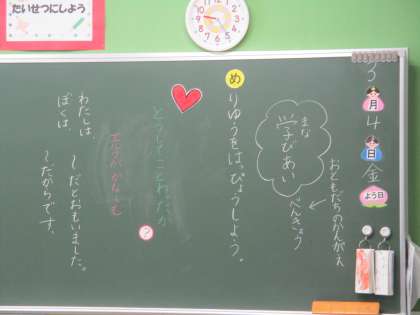 たいせつにしよう
3月4日金よう日
おともだちのかんがえ
べんきょう
まな
学びあい
め
りゆうをはっぴょうしよう。
?
わたしは、
ぼくは
〜だとおもいました。
〜だからです。